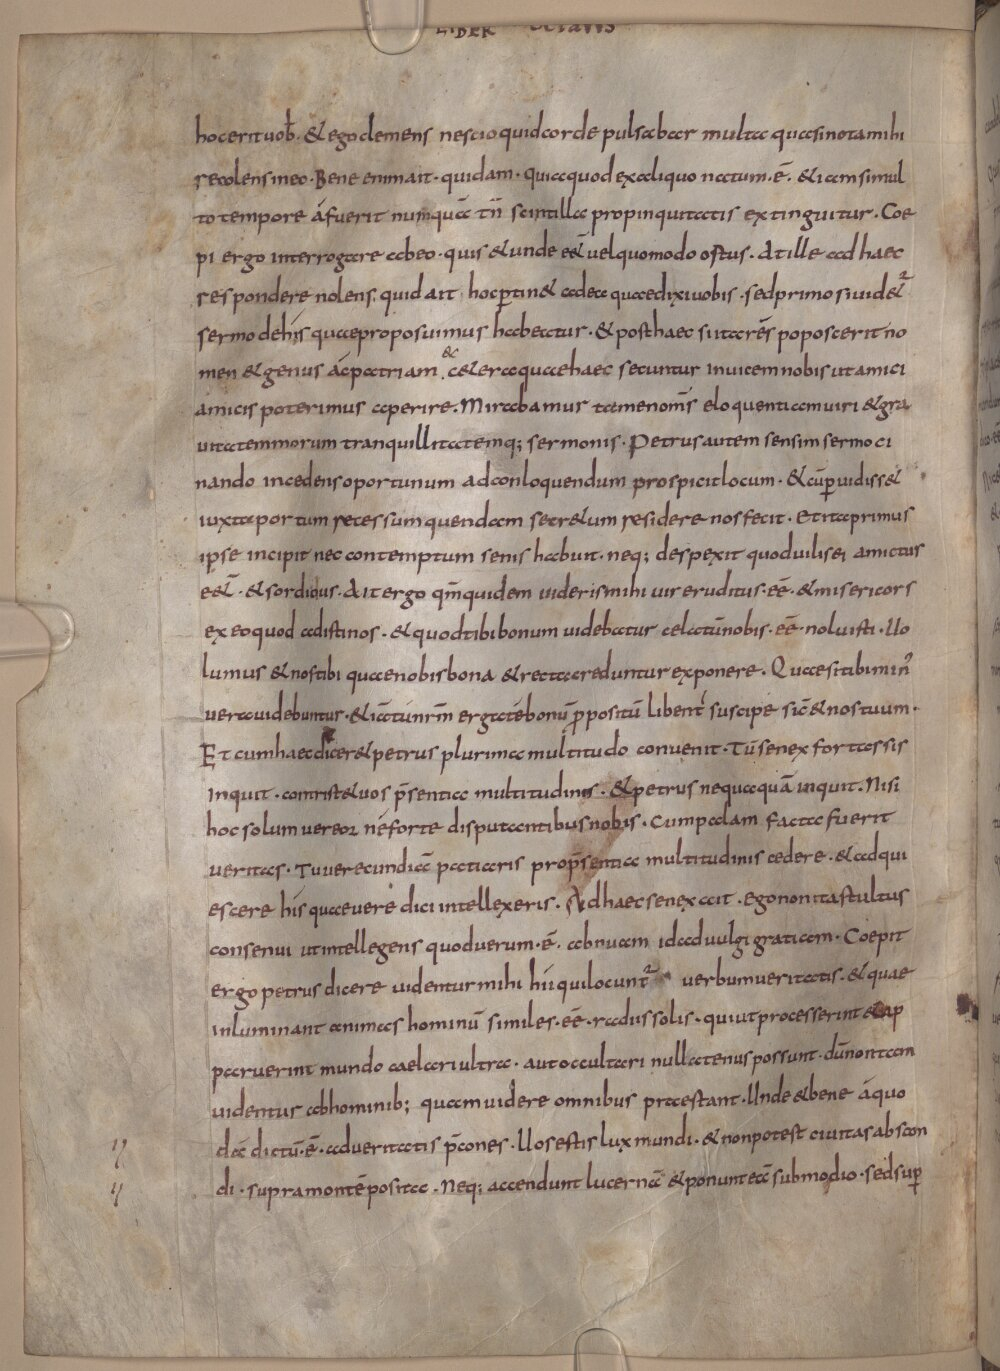 LIBER OCTAVUS
hoc erit uob̄. & ego clemens nescio quid corde pulsabar multa quasi nota mihi
recolens in eo. Bene enim ait. quidam. quia quod ex aliquo natum. ē. & iam si mul
to tempore afuerit numquā tn̄ scintilla propinquitatis extinguitur. Coe
pi ergo interrogare ab eo. quis & unde eēt uel quomodo ortus. At ille ad haec
respondere nolens. quid ait hoc p̱tin& ad ea quae dixi uobis. sed primo si uid&ur
sermo de his quae proposuimus habeatur. & post haec si ita rēs poposcerit no
men & genus ac patriam. &c&era quae haec secuntur inuicem nobis ut amici
amicis poterimus aperire. Mirabamus tamen om̄s eloquentiam uiri & gra
uitatem morum tranquillitatemq; sermonis. Petrus autem sensim sermoci
nando incedens oportunum ad conloquendum prospicit locum. & cū p̱uidiss&
iuxta portum recessum quendam secr&um residere nos fecit. Et ita primus
ipse incipit nec contemptum senis habuit. neq; despexit quod uilis ei amictus
eēt. & sordidus. Ait ergo qm̄ quidem uideris mihi uir eruditus. eē. & misericors
ex eo quod adisti nos. & quod tibi bonum uidebatur celatū nobis. eē. noluisti. Uo
lumus & nos tibi quae nobis bona & recta creduntur exponere. Quae si tibi min'
uera uidebuntur. & iā tū nr̄m erga te bonū p̱positū libent' suscipe sic̄ & nos tuum.
Et cum haec dicer& petrus plurima multitudo conuenit. Tū senex fortassis
inquit. contrist& uos p̄sentia multitudinis. & petrus nequaquā inquit. Nisi
hoc solum uereor ne forte disputantibus nobis. Cum palam facta fuerit
ueritas. Tu uerecundiā patiaris pro p̄sentia multitudinis cedere. & adqui
escere his quae uere dici intellexeris. Ad haec senex ait. ego non ita stultus
consenui ut intellegens quod uerum. ē. abnuam id ad uulgi gratiam. Coepit
ergo petrus dicere uidentur mihi hii qui locunt² uerbum ueritatis. & quae
inluminant animas hominū similes. eē. radius solis. qui ut processerint & ap
paruerint mundo caelari ultra. aut occultari nullatenus possunt. dū non tam
uidentur ab hominib; quam uidere omnibus praestant. Unde & bene a quo
dā dictū. ē. ad ueritatis p̄cones. Uos estis lux mundi. & non potest ciuitas abscon
di. supra montē posita. Neq; accendunt lucernā & ponunt eā sub modio. sed sup̱